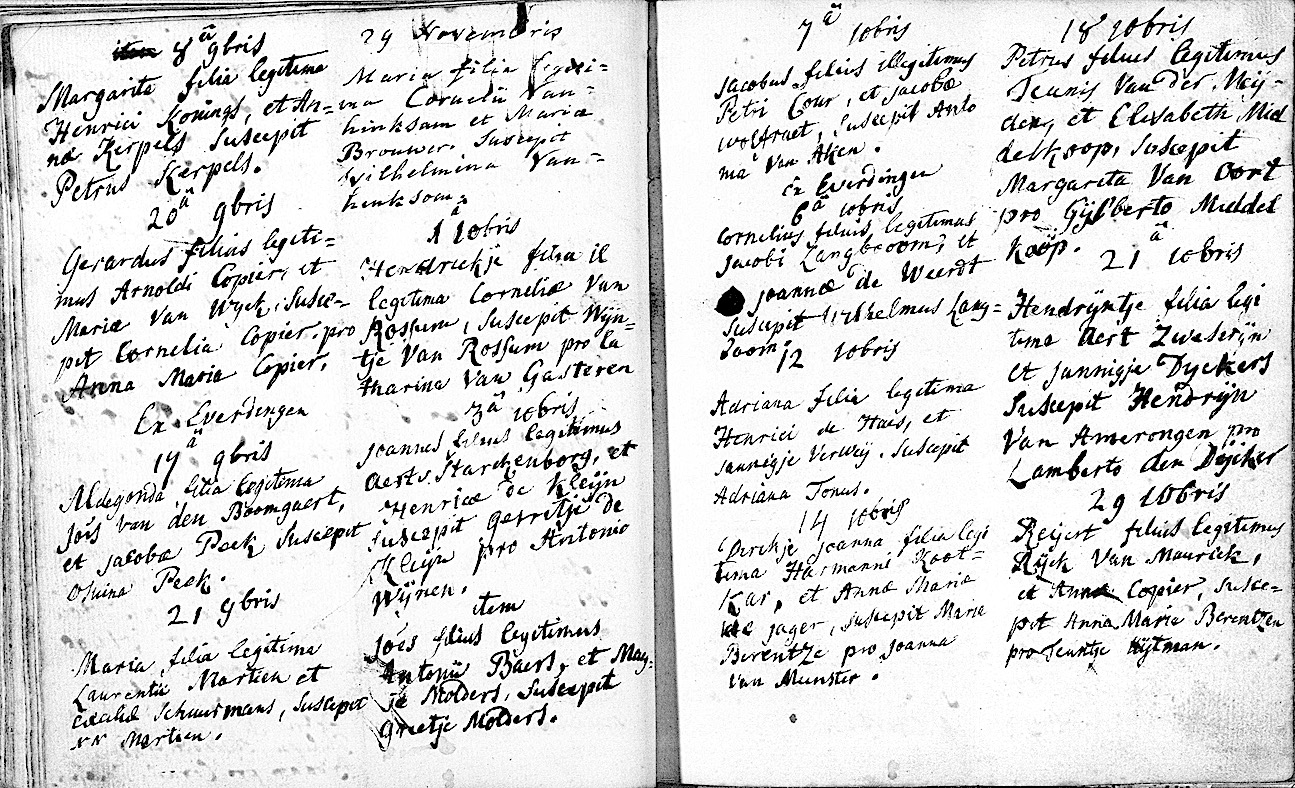 item 8ª 9bris
Margarita filia legitima
Henrici Konings, et An=
næ Kerpels Suscepit
Petrus Kerpels.
20ª 9bris
Gerardus filius legiti=
mus Arnoldi Copier, et
Mariæ Van Wyck, Susce=
pit Cornelia Copier. pro
Anna Maria Copier.
Ex Everdingen
19ª 9bris
Aldegonda filia legitima
Jois Van den Boomgaert,
et Jacoba Peek Suscepit
Peek.
21 9bris
Maria filia legitima
Laurentii Martien et
Schuurmans, Suscepit
NN Martien.
29 Novembris
Maria filia legiti=
ma Cornelii Van=
hinksam et Maria
Brouwer. Suscepit
Wilhelmina Van=
hinksam.
1ª 10bris
Hendrickje filia il
legitima Corneliæ Van
Rossum, Suscepit Wijn=
tje Van Rossum pro Ca
tharina Van Gasteren
3ª 10bris
Joannes filius legitimus
Aerts Starckenborg, et
Henricæ de Kleijn
Suscepit gerritje de
Kleijn pro Antonio
Wijnen.
item
Jois filius legitimus
Antonii Baers, et May=
je Molders, Suscepit
Grietje Molders.
7ª 10bris
Jacobus filius illegitimus
Petri Cour, et Jacobæ
Wolfraet, Suscepit Anto
nia Van Aken.
Ex Everdingen
6ª 10bris
Cornelius filius legitimus
Jacobi Langboom, et
Joannæ de Weerdt
Suscepit Wilhelmus Lang=
boom.
12 10bris
Adriana filia legitima
Henrici de Haes, et
Jannigje Verweij. Suscepit
Adriana Tonus.
14 10bris
Dirckje Joanna filia legi
tima Harmanni Koot=
kar, et Anna Maria
de Jager, Suscepit Maria
Berentze pro Joanna
Van Munster.
18 10bris
Petrus filius legitimus
Teunis Van der Meij=
den, et Elisabeth Mid
delkoop, Suscepit
Margarita Van Oort
pro Gijsberto Middel
koop.
21ª 10bris
Hendrijntje filia legi
tima Aert Zweserijn
et Jannigje Dyckers
Suscepit Hendrijn
Van Amerongen pro
Lamberto den Dijcker
29 10bris
Reijert filius legitimus
Rijck Van Maurick,
et Anna Copier, Susce=
pit Anna Maria Berentzen
pro Teuntje Wijtman.